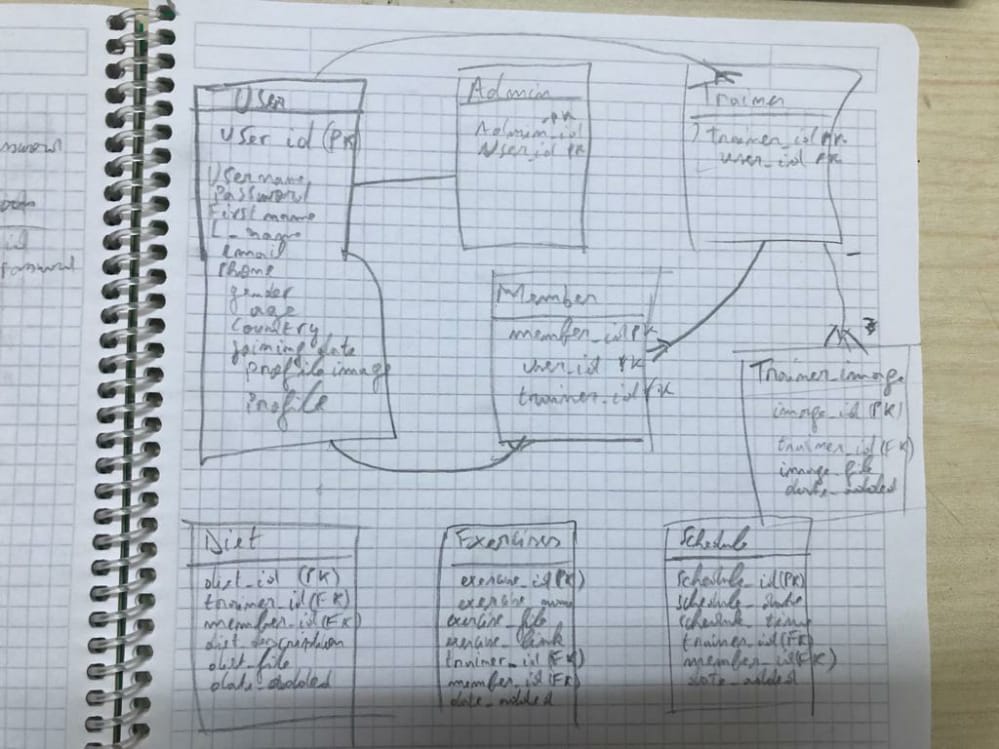 password
id
password
User
User id (PK)
Username
Password
First name
L_name
email
Phone
gender
age
Country
joining date
profile image
Profile
Admin
PK
Admin_id
User_id
Trainer
trainer_id PK
user_id
Member
member_id PK
user_id
trainer_id
Trainer_image
image_id (PK)
trainer_id (FK)
image_file
date_added
Diet
diet_id (PK)
trainer_id (FK)
member_id (FK)
diet_description
diet_file
date_added
Exercises
exercise_id (PK)
exercise_name
exercise_file
exercise_link
trainer_id (FK)
member_id (FK)
date_added
Schedule
Schedule_id (PK)
Schedule_date
Schedule_time
trainer_id (FK)
member_id (FK)
date_added